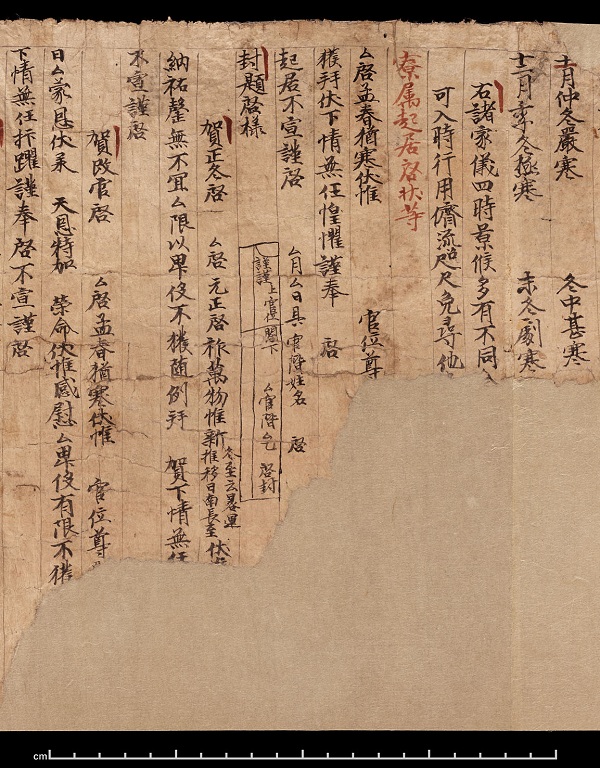 十一月仲冬嚴寒 冬中甚寒
十二月季冬極寒 末冬劇寒
右諸家儀四時景候多有不同
可入時行用儕流咫尺免尋他
寮属起居啓状等
厶啓孟春猶寒伏惟 官位尊
獲拜伏下情無任惶懼謹奉 啓
起居不宣謹啓 厶月厶日具官階姓名 啓
封題啓樣
謹謹 上 官位閤下 厶官階厶乙 啓封
賀正冬啓 厶啓元正啓祚萬物惟新 冬至云晷運推移日南長至 伏
納祐罄無不宜厶限以卑伇不獲随例拜 賀下情無任
不宣謹啓
賀改官啓 厶啓孟春猶寒伏惟 官位尊
日厶蒙恩伏承 天恩特加 榮命伏惟感慰厶卑伇有限不獲
下情無任抃躍謹奉啓不宣謹啓